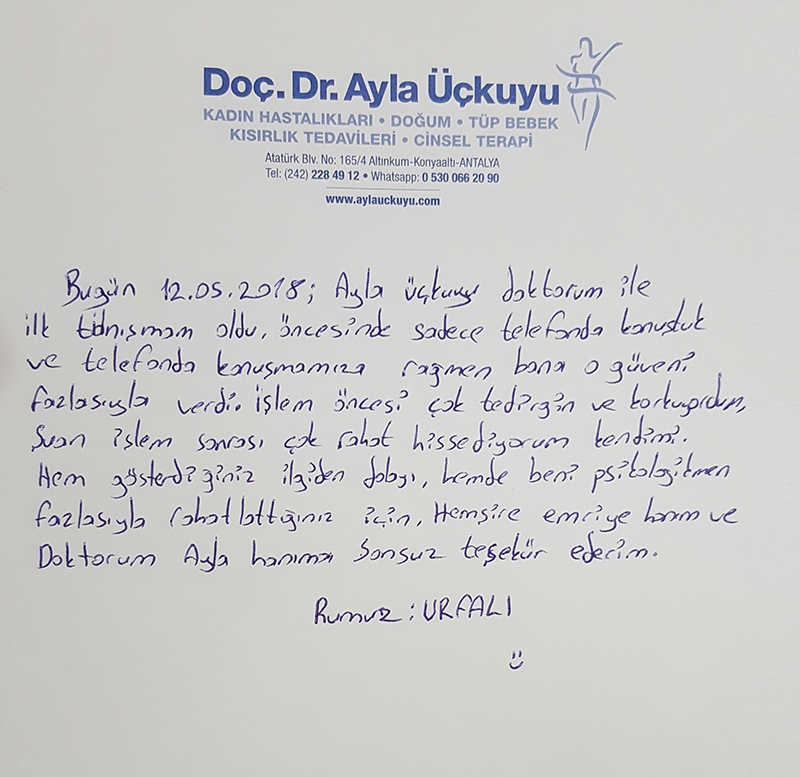 Doç. Dr. Ayla Üçkuyu
KADIN HASTALIKLARI • DOĞUM • TÜP BEBEK
KISIRLIK TEDAVİLERİ • CİNSEL TERAPİ
Atatürk Blv. No: 165/4 Altınkum-Konyaaltı-ANTALYA
Tel: (242) 228 49 12 • Whatsapp: 0 530 066 20 90
www.aylauckuyu.com
Bugün 12.05.2018; Ayla üçkuyu doktorum ile
ilk tanışmam oldu, öncesinde sadece telefonda konuştuk
ve telefonda konuşmamıza rağmen bana o güveni
fazlasıyla verdi. işlem öncesi çok tedirgin ve korkuyordum,
Şuan işlem sonrası çok rahat hissediyorum kendimi.
Hem gösterdiğiniz ilgiden dolayı, hemde beni psikolojikmen
fazlasıyla rahatlattığınız için, Hemşire emriye hanım ve
Doktorum Ayla hanıma Sonsuz teşekür ederim.
Rumuz: URFALI